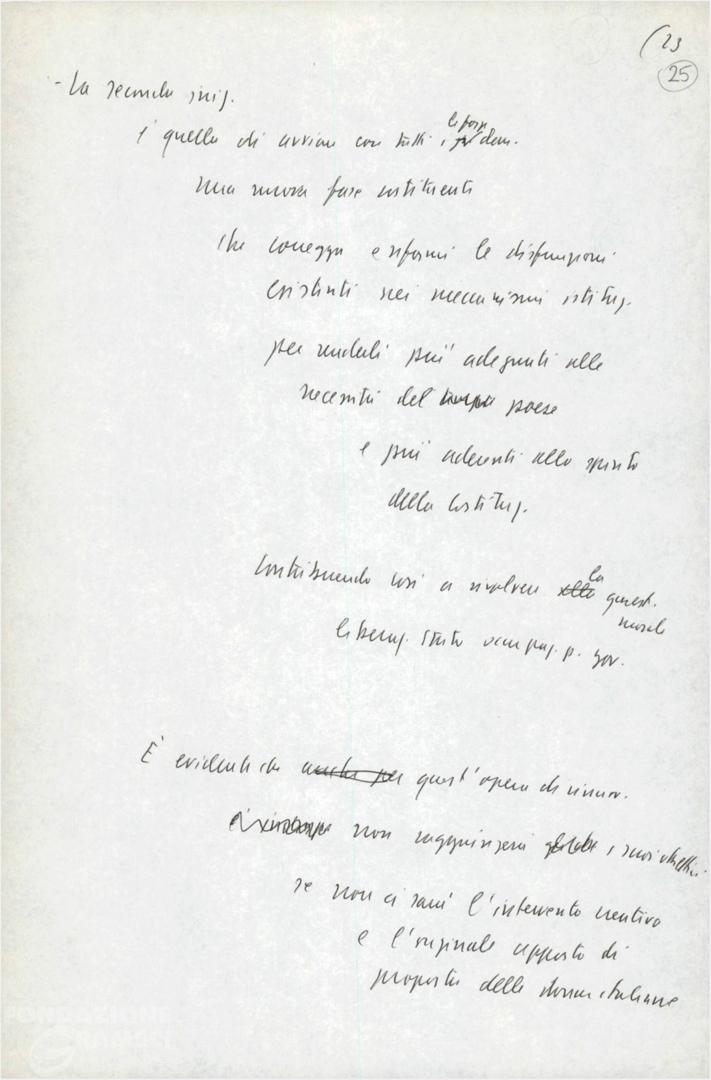 (23
25
- La seconda iniz.
è quella di avviare con tutti i le forze dem.
una nuova fase costituente
che corregga e riformi le disfunzioni
esistenti nei meccanismi istituz.
per renderli più adeguati alle
necessità del paese
e più aderenti allo spirito
della Costituz.
Contribuendo così a risolvere la quest.
morale
liberaz. Stato occupaz. p. gov.
È evidente che anche per quest'opera di rinnov.
non raggiungerà i suoi obiettivi
se non ci sarà l'intervento creativo
e l'originale apporto di
proposta delle donne italiane
FONDAZIONE
GRAMSCI